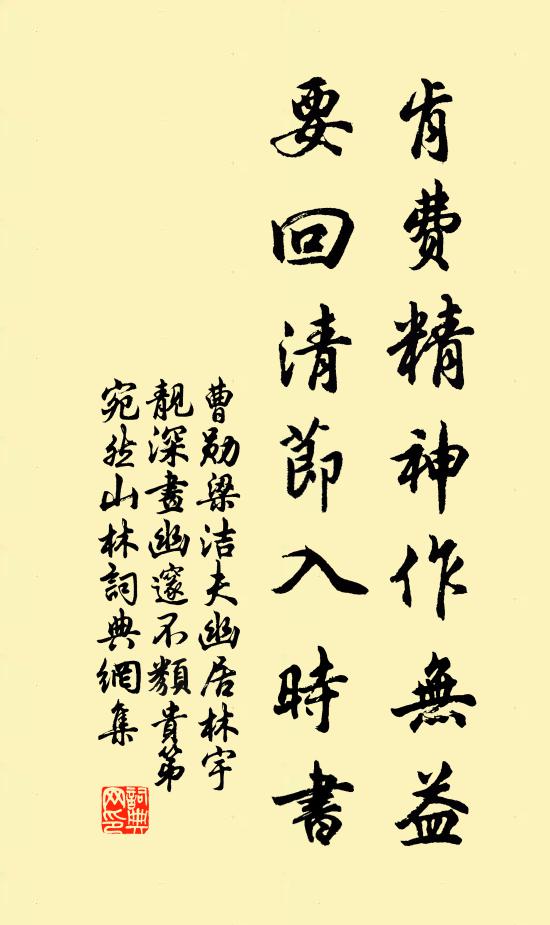 肯费精神作無益
要回清節入時書
曹勛梁洁夫幽居林宇
靚深畫幽邃不類貴第
宛然山林詞典網集
詞典网印